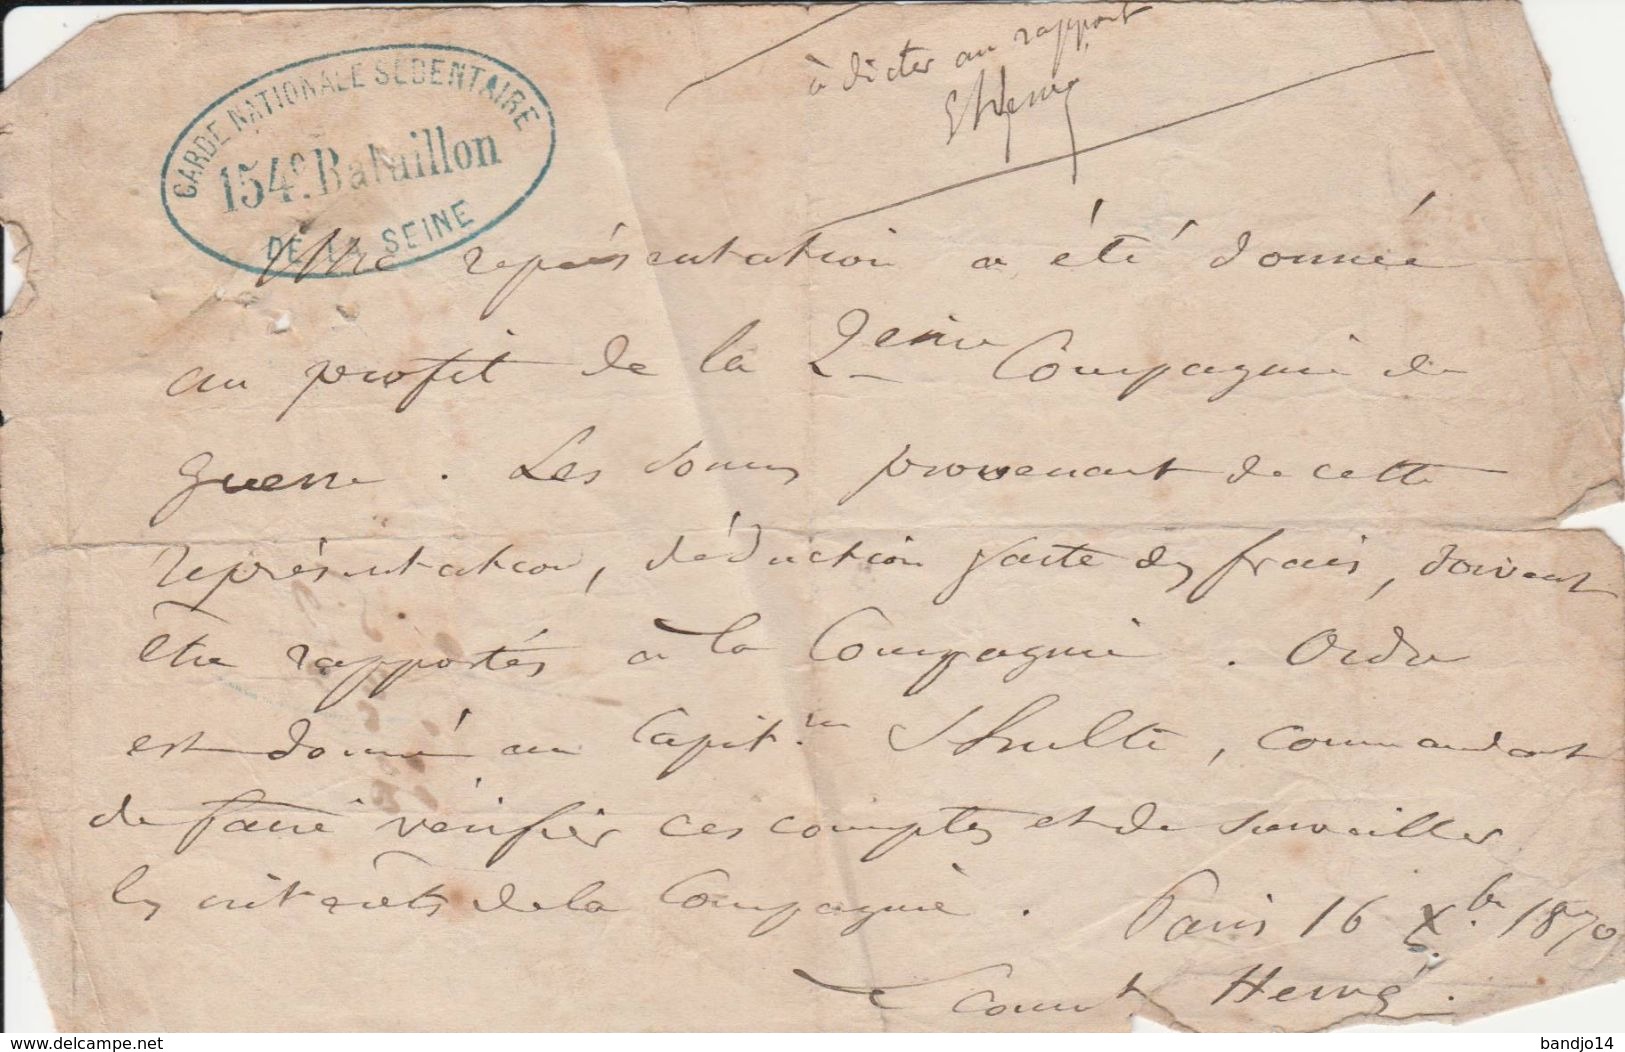 à dicter au rapport
EHervé
GARDE NATIONALE SEDENTAIRE
154e. Bataillon
DE LA SEINE
Une représentation a été donnée
au profit de la 2eme Compagnie de
guerre. Les sommes provenant de cette
représentation, déduction faite des frais, doivent
être rapportés à la Compagnie. Ordre
est donné au Capit.ne Shulte, commandant
de faire vérifier ces comptes et de surveiller
les intérêts de la Compagnie. Paris 16 Xbre 1870
Le Comt. Hervé.
delcampe.net
bandjo14